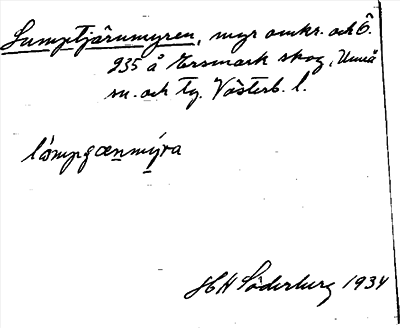 Lamptjärnmyren, myr omkr. och Ö.
235 å Ersmark skog, Umeå
sn. och tg. Västerb. l.
lámpgænmýra
HH Söderburg 1934